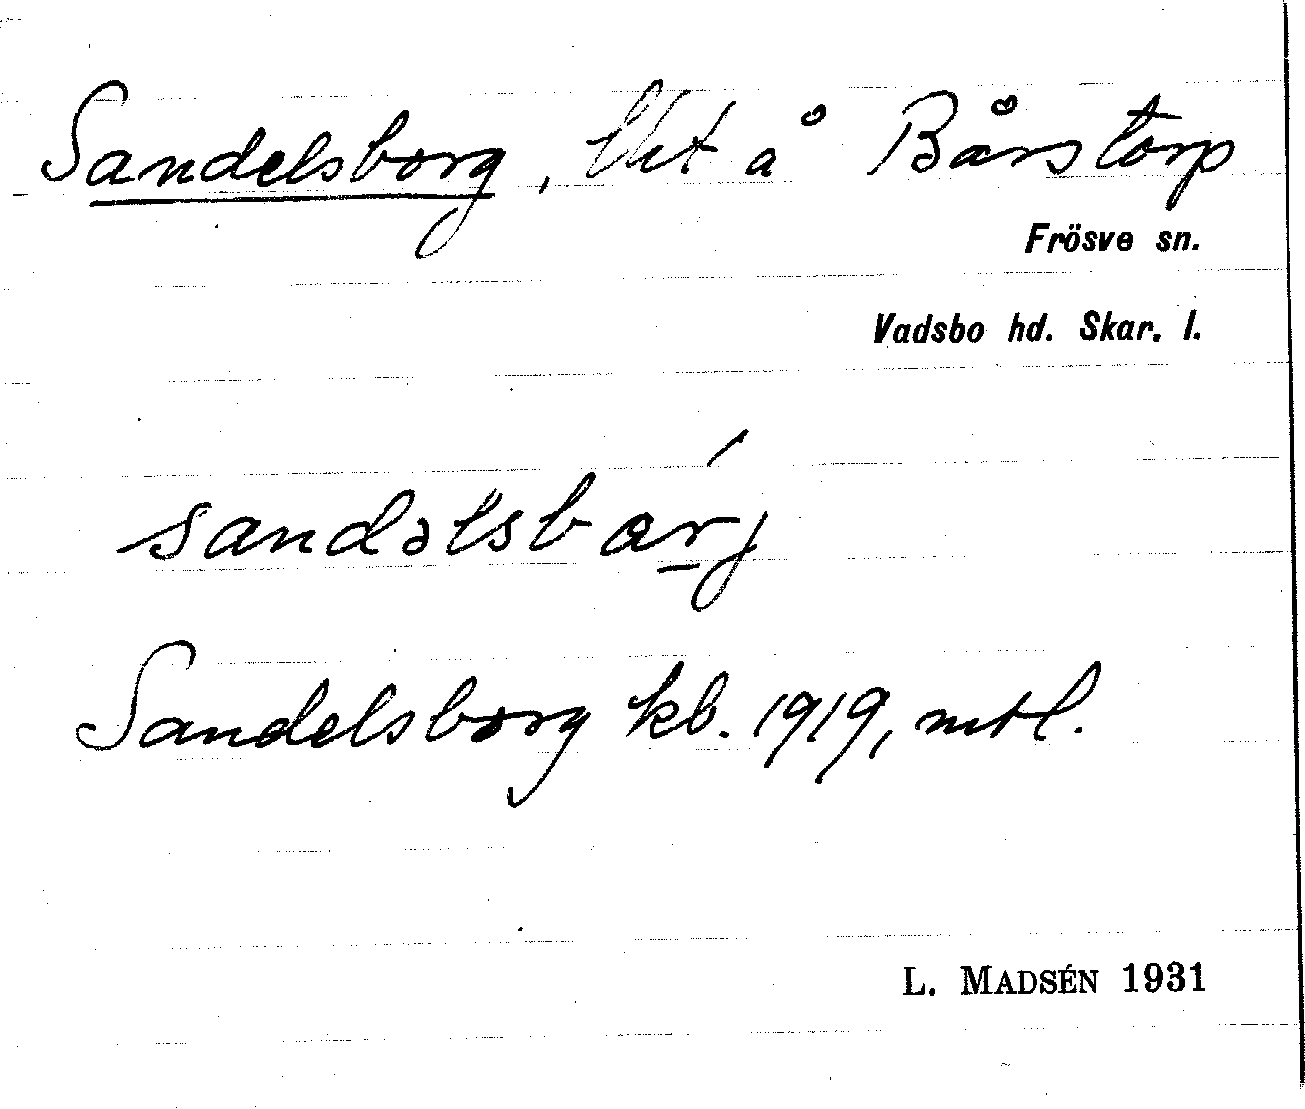 Sandelsborg, lht å Bårstorp
Frösve sn.
Vadsbo hd. Skar. l.
sandəlsbárj
Sandelsborg kb. 1919, mtl.
L. MADSÉN 1931